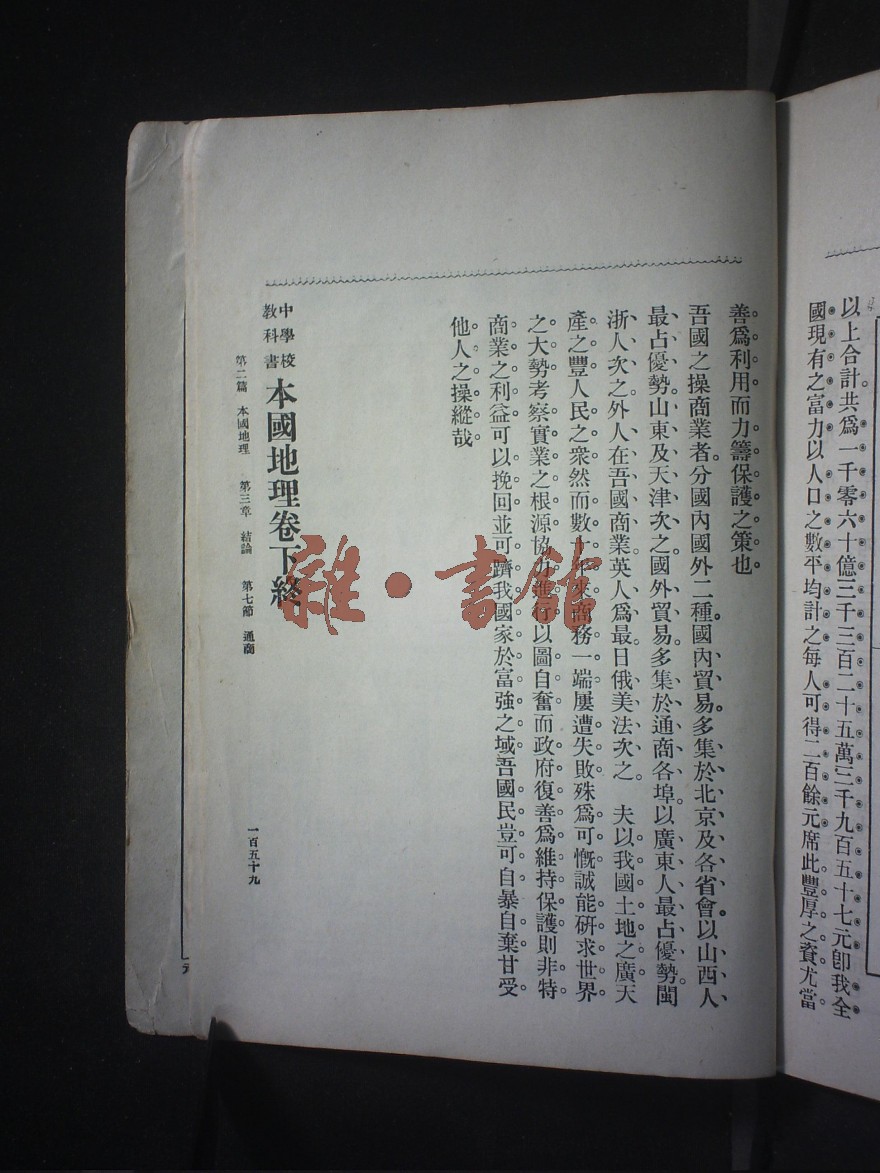 以上合計共爲一千零六十億三千三百二十五萬三千九百五十七元卽我全
國現有之富力以人口之數平均計之每人可得二百餘元席此豐厚之資尤當
善爲利用而力籌保護之策也
吾國之操商業者分國內國外二種。國內貿易多集於北京及各省會。以山西人
最占優勢、山東及天津次之。國外貿易多集於通商各埠。以廣東人最占優勢。閩
浙人次之。外人在吾國商業英人爲最。日俄美法次之。　夫以我國土地之廣天
產之豐人民之衆然而數十年來商務一端屢遭失敗殊爲可慨誠能研求世界
之大勢考察實業之根源協力進行以圖自奮而政府復善爲維持保護則非特
商業之利益可以挽回並可躋我國家於富強之域吾國民豈可自暴自棄甘受
他人之操縱哉。
中學校教科書 本國地理卷下終
第二篇　本國地理　第三章　結論　第七節　通商
一百五十九
雜·書館